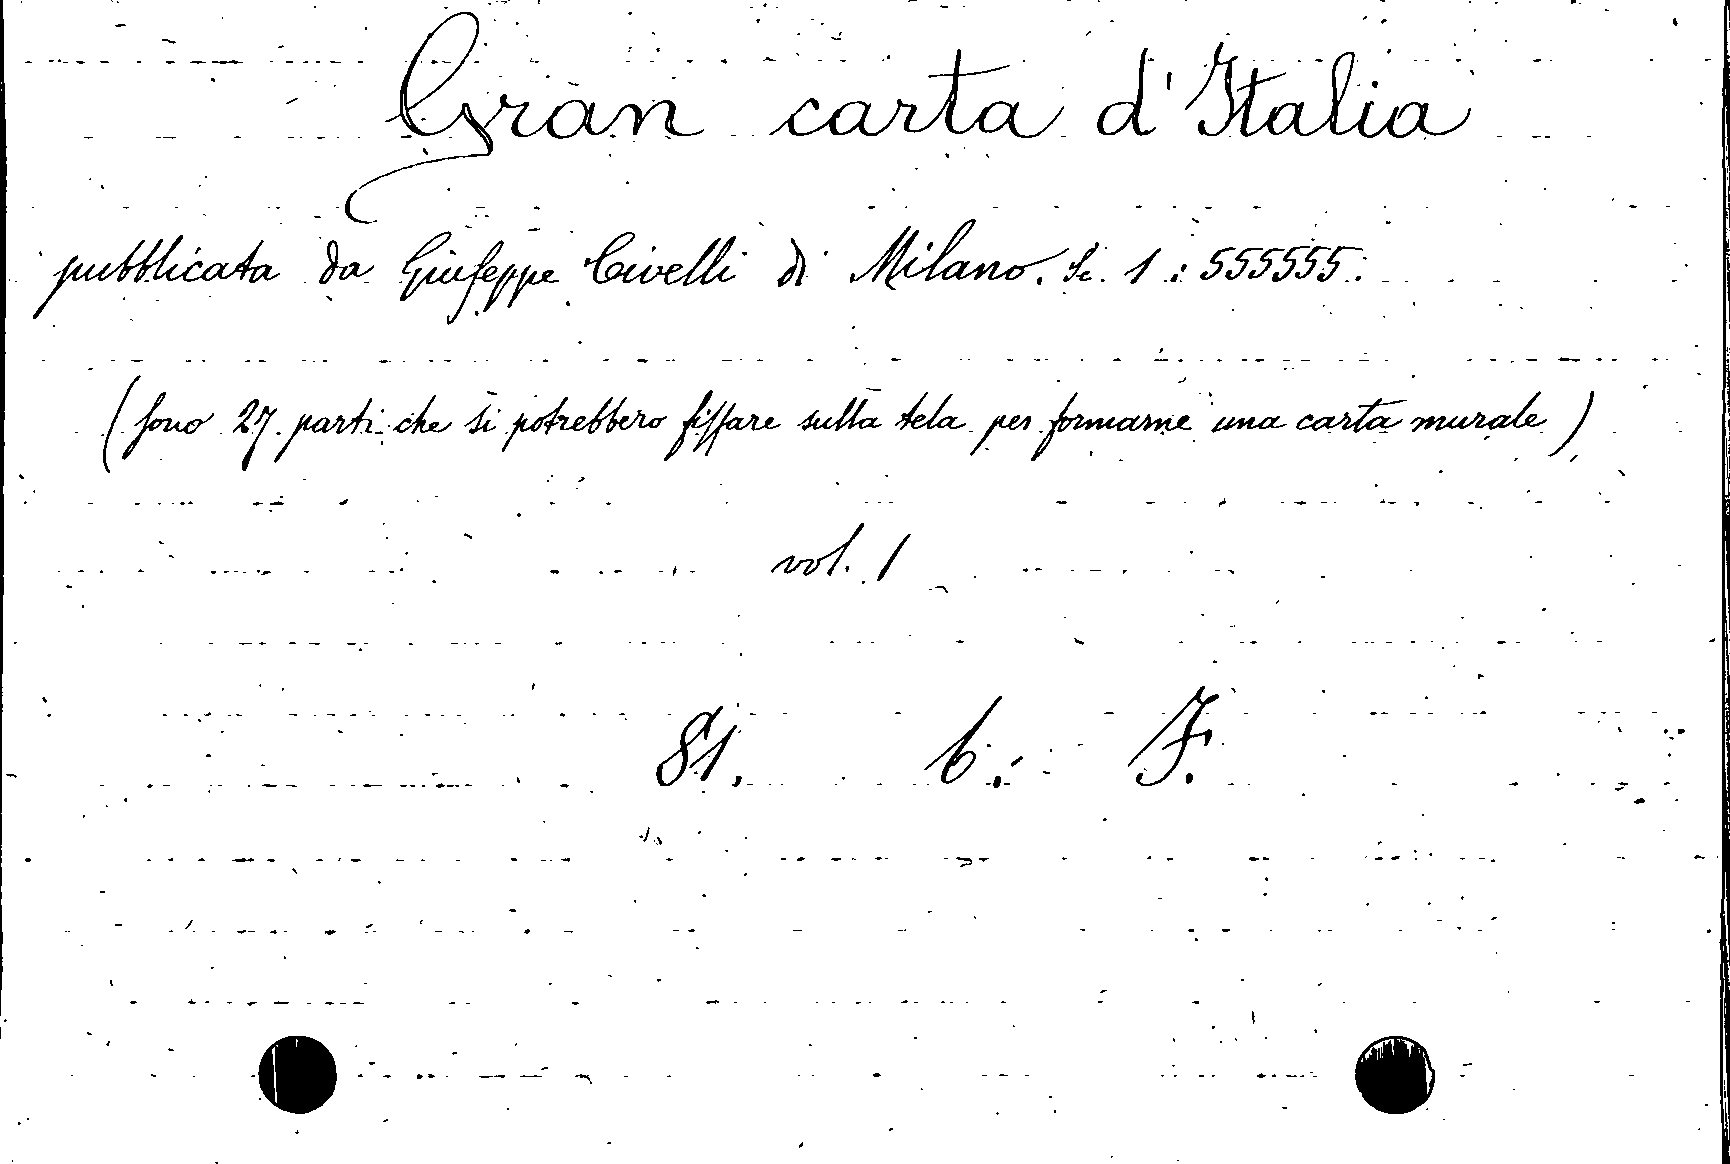 Gran carta d'Italia
pubblicata da Giuseppe Civelli di Milano. Sc. 1 : 555555.
(sono 27 parti che si potrebbero fissare sulla tela per formarne una carta murale)
vol. 1
81. 6. F.